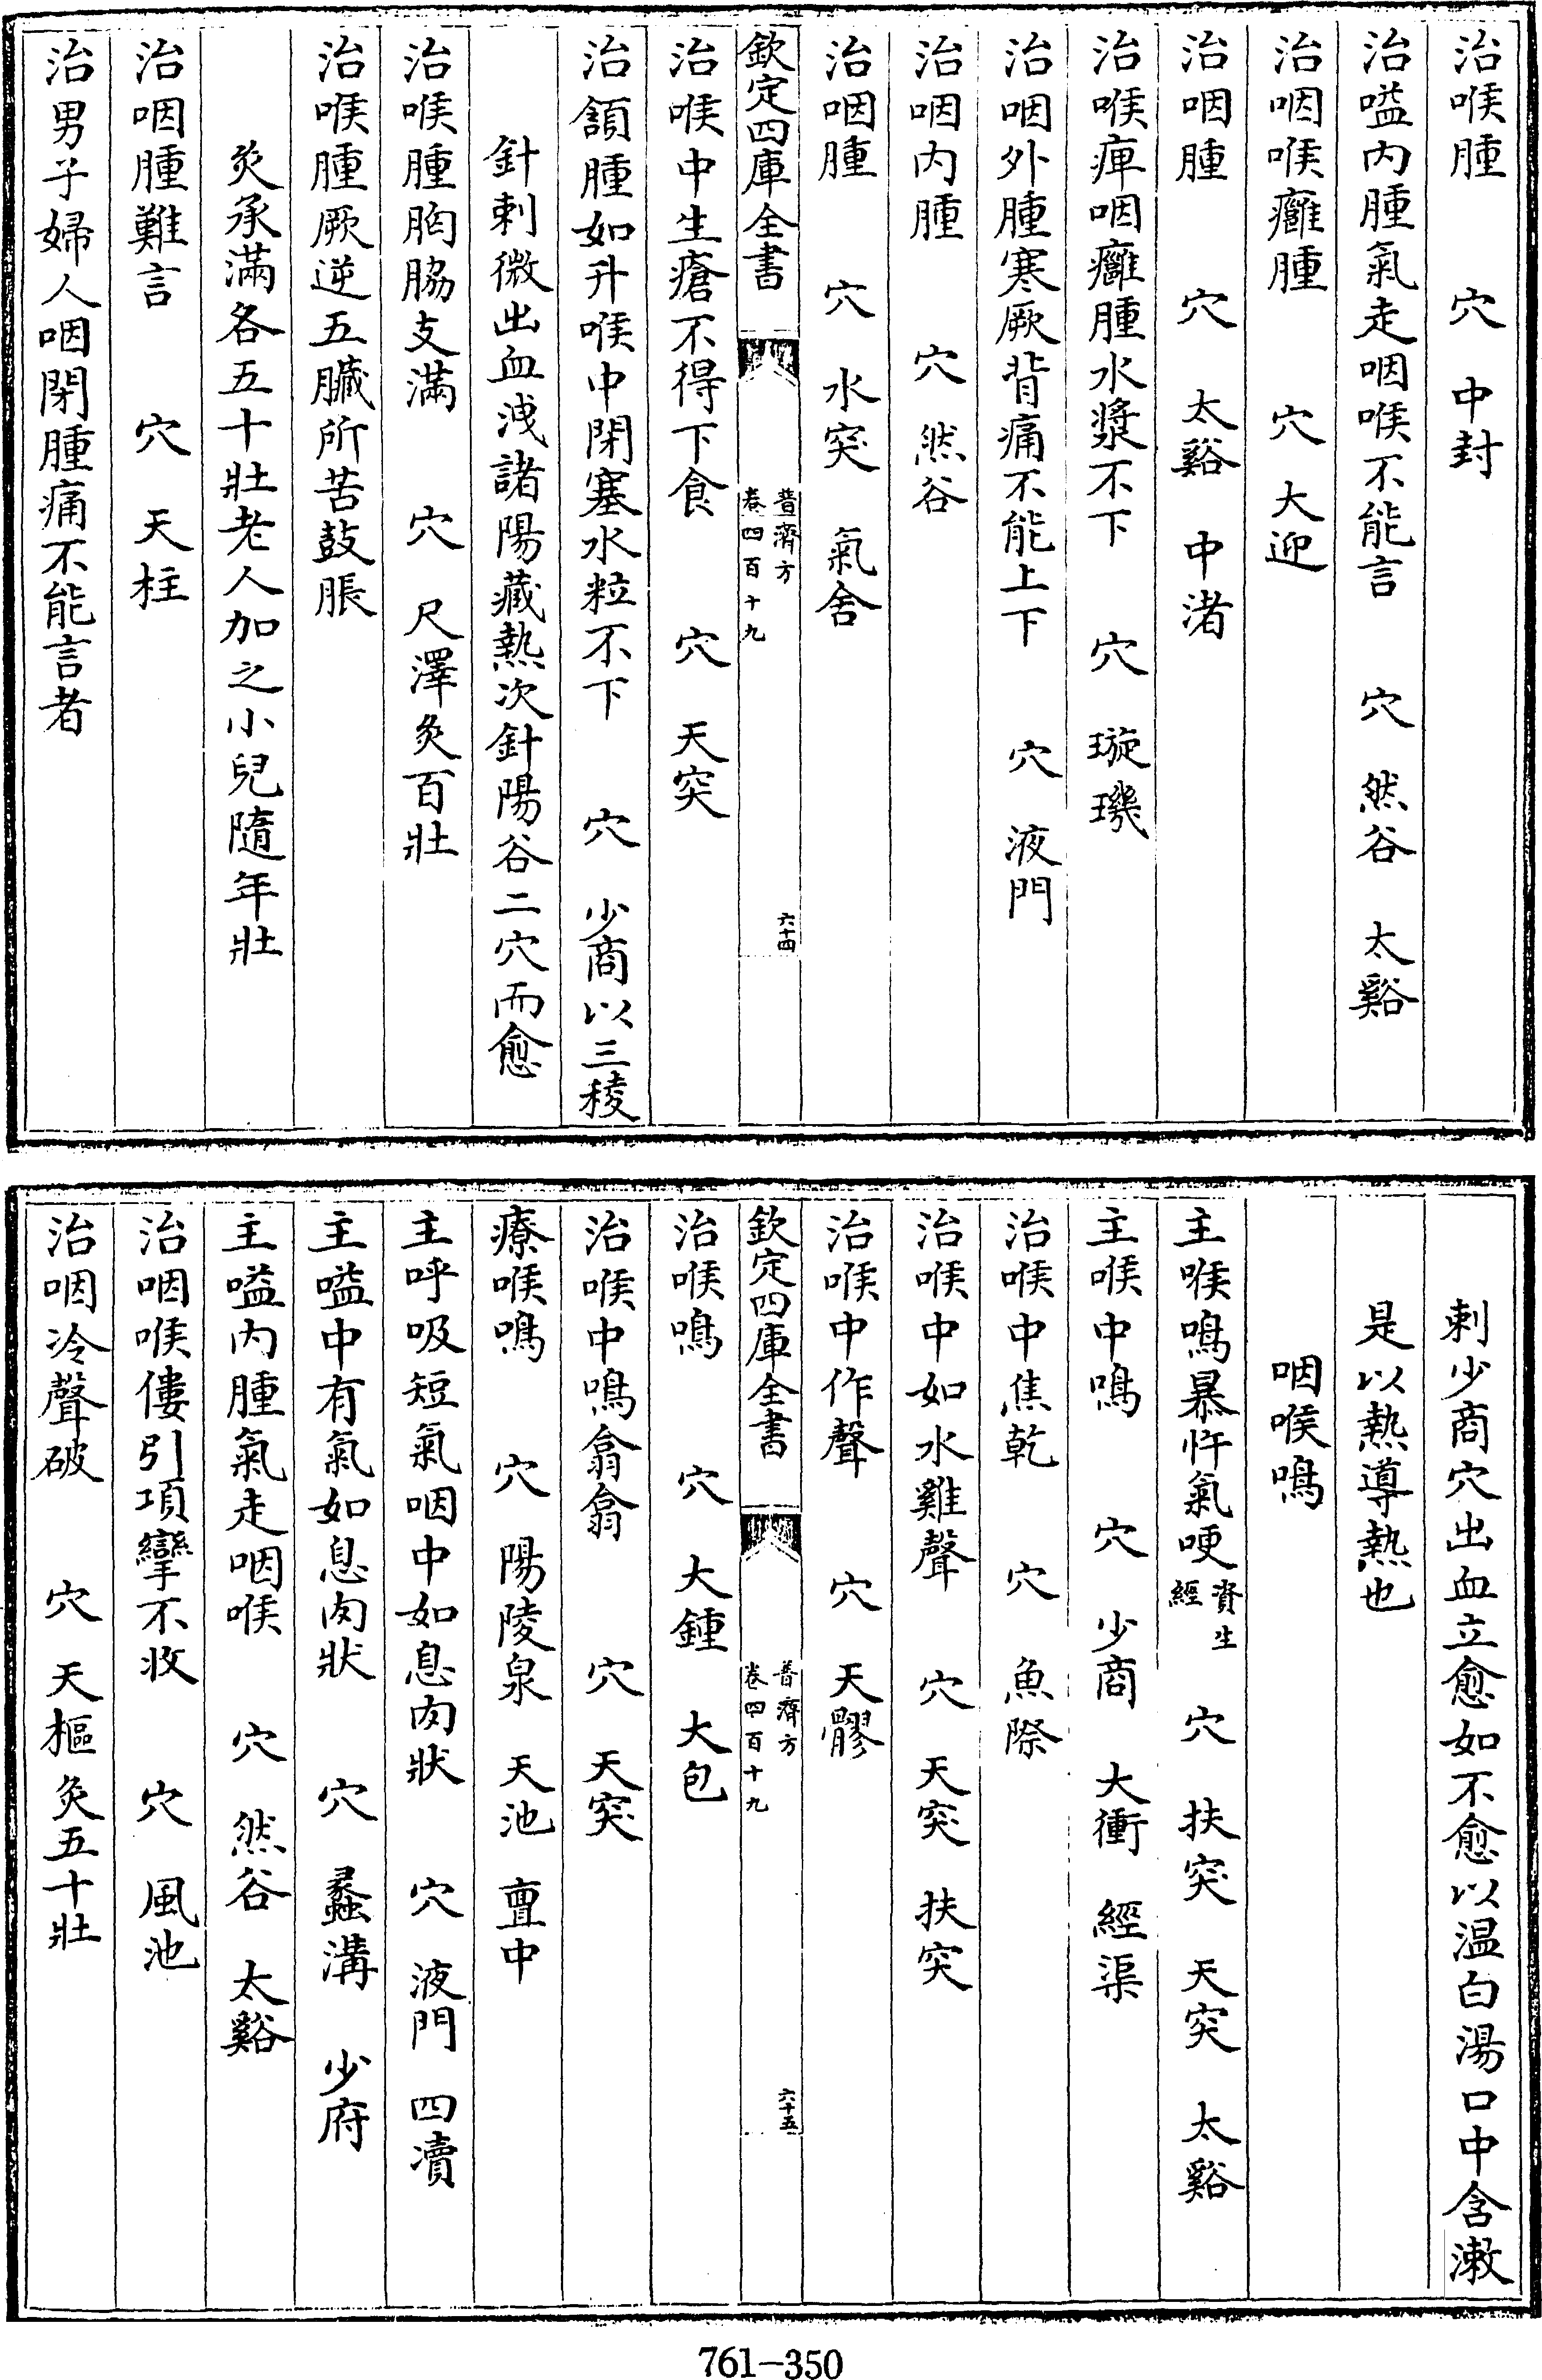 治喉腫　穴　中封
治嗌内腫氣走咽喉不能言　穴　然谷　太谿
治咽喉癰腫　穴　大迎
治咽腫　穴　太谿　中渚
治喉痺咽癰腫水漿不下　穴　璇璣
治咽外腫寒厥背痛不能上下　穴　液門
治咽内腫　穴　然谷
治咽腫　穴　水突　氣舍
欽定四庫全書　普濟方　卷四百十九　六十四
治喉中生瘡不得下食　穴　天突
治頷腫如升喉中閉塞水粒不下　穴　少商以三稜
針刺微出血洩諸陽藏熱次針陽谷二穴而愈
治喉腫胸脇支滿　穴　尺澤灸百壯
治喉腫厥逆五臟所苦鼓脹
灸承滿各五十壯老人加之小兒隨年壯
治咽腫難言　穴　天柱
治男子婦人咽閉腫痛不能言者
刺少商穴出血立愈如不愈以温白湯口中含漱
是以熱導熱也
咽喉鳴
主喉鳴暴忤氣哽資生經　穴　扶突　天突　太谿
主喉中鳴　穴　少商　大衝　經渠
治喉中焦乾　穴　魚際
治喉中如水雞聲　穴　天突　扶突
治喉中作聲　穴　天髎
欽定四庫全書　普濟方　卷四百十九　六十五
治喉鳴　穴　大鍾　大包
治喉中鳴翕翕　穴　天突
療喉鳴　穴　陽陵泉　天池　亶中
主呼吸短氣咽中如息肉狀　穴　液門　四瀆
主嗌中有氣如息肉狀　穴　蠡溝　少府
主嗌内腫氣走咽喉　穴　然谷　太谿
治咽喉僂引項攣不收　穴　風池
治咽冷聲破　穴　天樞灸五十壯
761-350